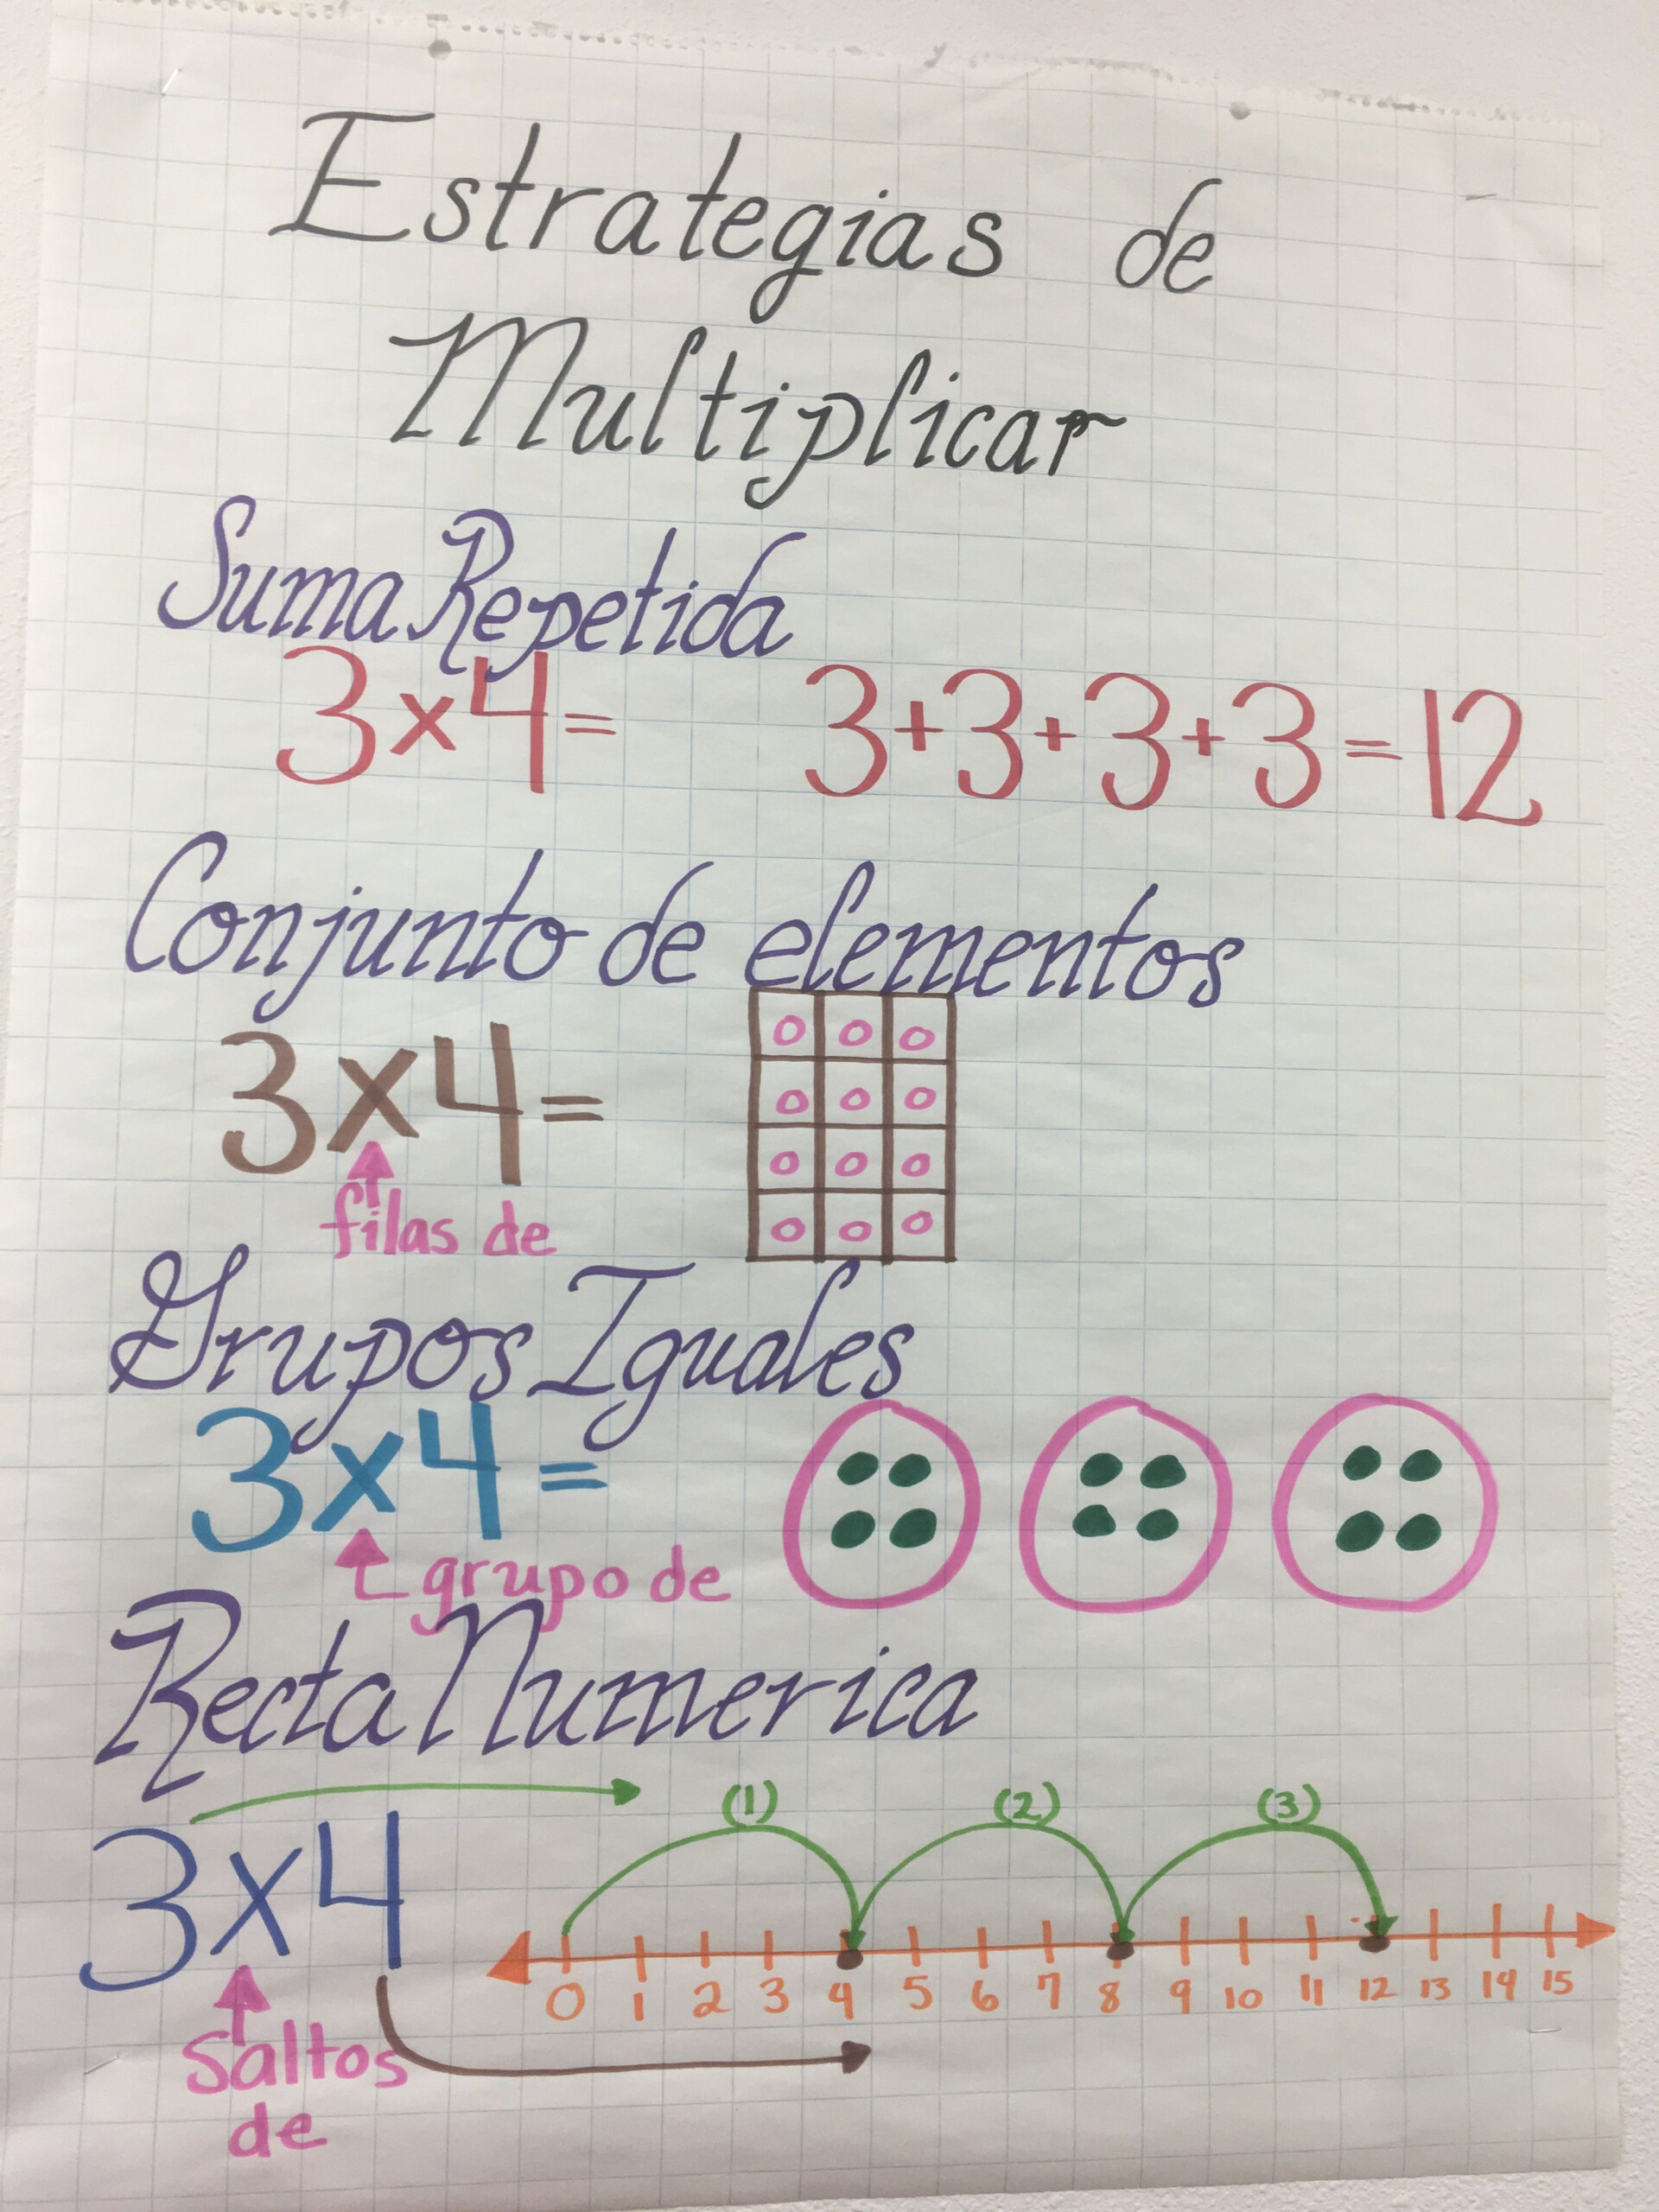 Estrategias de
Multiplicar
Suma Repetida
3x4= 3+3+3+3=12
Conjunto de elementos
3x4=
filas de
Grupos Iguales
3x4=
grupo de
Recta Numerica
(1) (2) (3)
3x4
0 1 2 3 4 5 6 7 8 9 10 11 12 13 14 15
Saltos
de